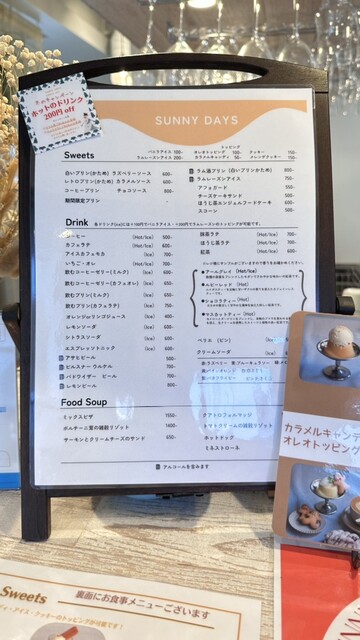 冬のキャンペーン
ホットのドリンク
200円 off
SUNNY DAYS
Sweets
バニラアイス 100-
ラムレーズンアイス 200-
トッピング
オレオトッピング 100-
カラメルキャンディ 50-
クッキー 150-
メレンゲクッキー 100-
白いプリン(かため) ラズベリーソース 600-
レトロプリン(かため) カラメルソース 600-
コーヒープリン チョコソース 800-
期間限定プリン
ラム酒プリン (白いプリンかため) 800-
ラムレーズンアイス 750-
アフォガード 550-
チーズケーキサンド 500-
ほうじ茶エンジェルフードケーキ 600-
スコーン 500-
Drink
コーヒー (Hot/Ice) 500-
カフェラテ (Hot/Ice) 600-
アイスカフェモカ (Ice) 700-
いちご・オレ (Hot/Ice) 700-
飲むコーヒーゼリー(ミルク) (Ice) 600-
飲むコーヒーゼリー(カフェオレ) (Ice) 650-
飲むプリン(ミルク) (Ice) 700-
飲むプリン(カフェラテ) (Ice) 750-
オレンジorリンゴジュース (Ice) 400-
レモンソーダ (Ice) 600-
シトラスソーダ (Ice) 600-
エスプレッソトニック (Ice) 600-
アサヒビール 500-
ピルスナー ウルケル 700-
バドワイザー ビール 700-
レモンビール 800-
抹茶ラテ (Hot/Ice) 700-
ほうじ茶ラテ (Hot/Ice) 700-
紅茶 (Hot/Ice) 600-
アールグレイ (Hot/Ice)
ルビーレッド (Hot)
ショコラティー (Hot)
マスカットティー (Hot)
ペリエ (ビン) (Ice)
クリームソーダ (Ice)
Food Soup
ミックスピザ 1550-
ポルチーニ茸の雑穀リゾット 1400-
サーモンとクリームチーズのサンド 650-
クアトロフォルマッジ
トマトクリームの雑穀リゾット
ホットドッグ
ミネストローネ
アルコールを含みます
カラメルキャンデ
オレオトッピング
Sweets
裏面にお食事メニューございます